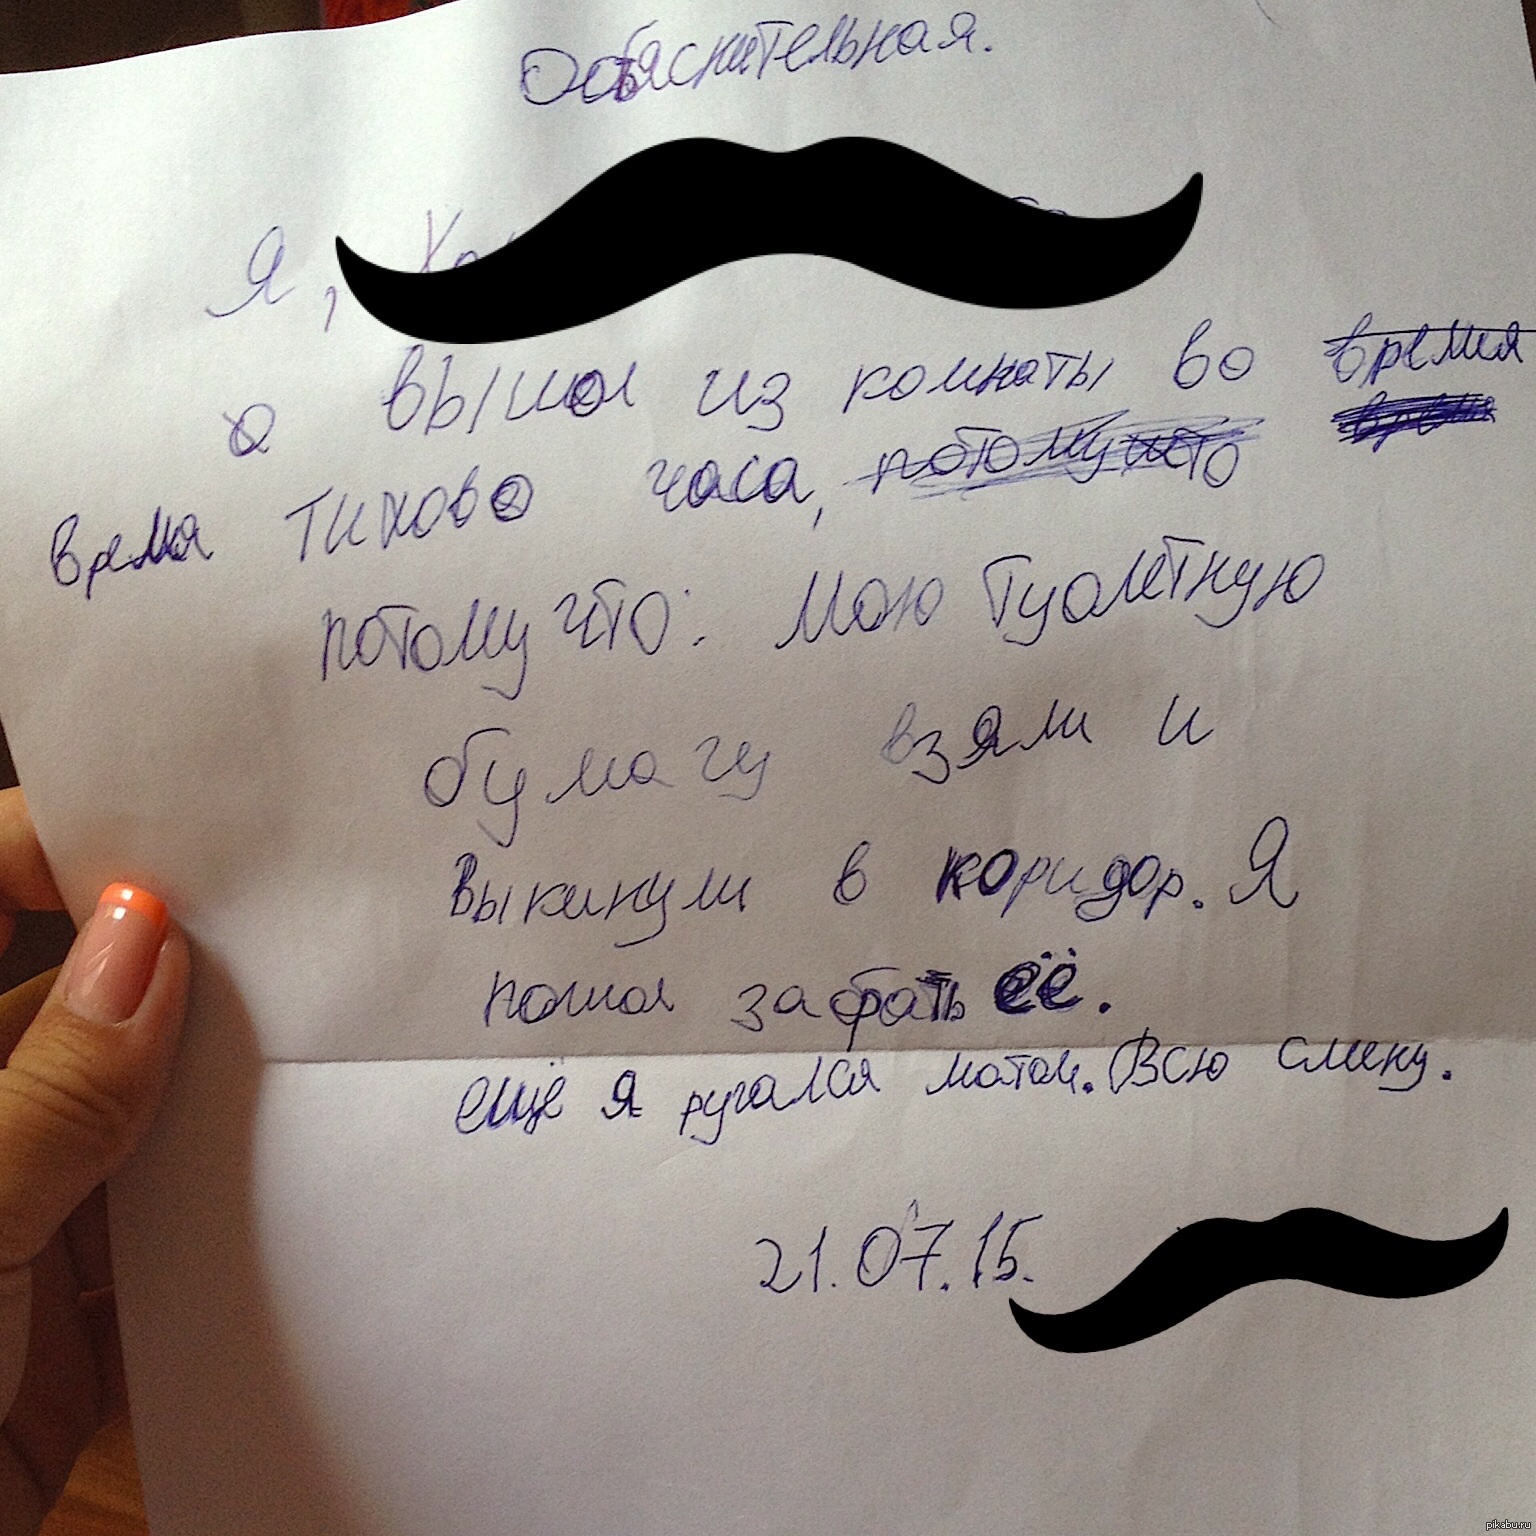 Объяснительная.
Я,
вышол из комнаты во время
время тихово часа, потомучто
потому что: Мою туолетную
бумагу взяли и
выкинули в коридор. Я
пошол забрать её.
ещё я ругался матом. Всю смену.
21.07.15.
pikabu.ru